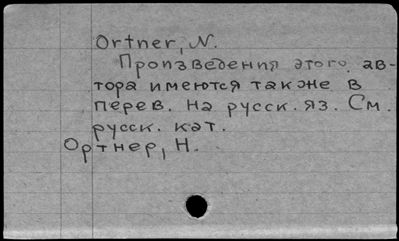 Ortner, N.
Произведения этого ав-
тора имеются также в
перев. на русск. яз. См.
русск. кат.
Ортнер, Н.